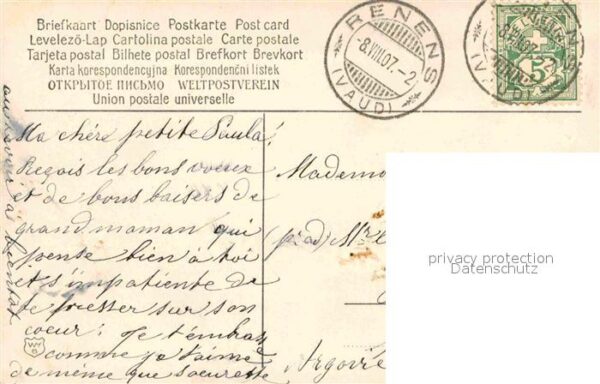 Briefkaart Dopisnice Postkarte Post card
Levelező-Lap Cartolina postale Carte postale
Tarjeta postal Bilhete postal Brefkort Brevkort
Karta korespondencyjna Korespondenční lístek
ОТКРЫТОЕ ПИСЬМО WELTPOSTVEREIN
Union postale universelle
RENENS
-8.VIII.07.-2
(VAUD)
RENENS
(VAUD)
5
Ma chère petite Paula!
Reçois les bons voeux
et de bons baisers de
grand maman qui
pense bien à toi
et s'impatiente de
te presser sur son
coeur! Je t'embrasse
comme je t'aime
de même que soeurette
au revoir à bientot
Mademo
Mr
Argovie
privacy protection
Datenschutz